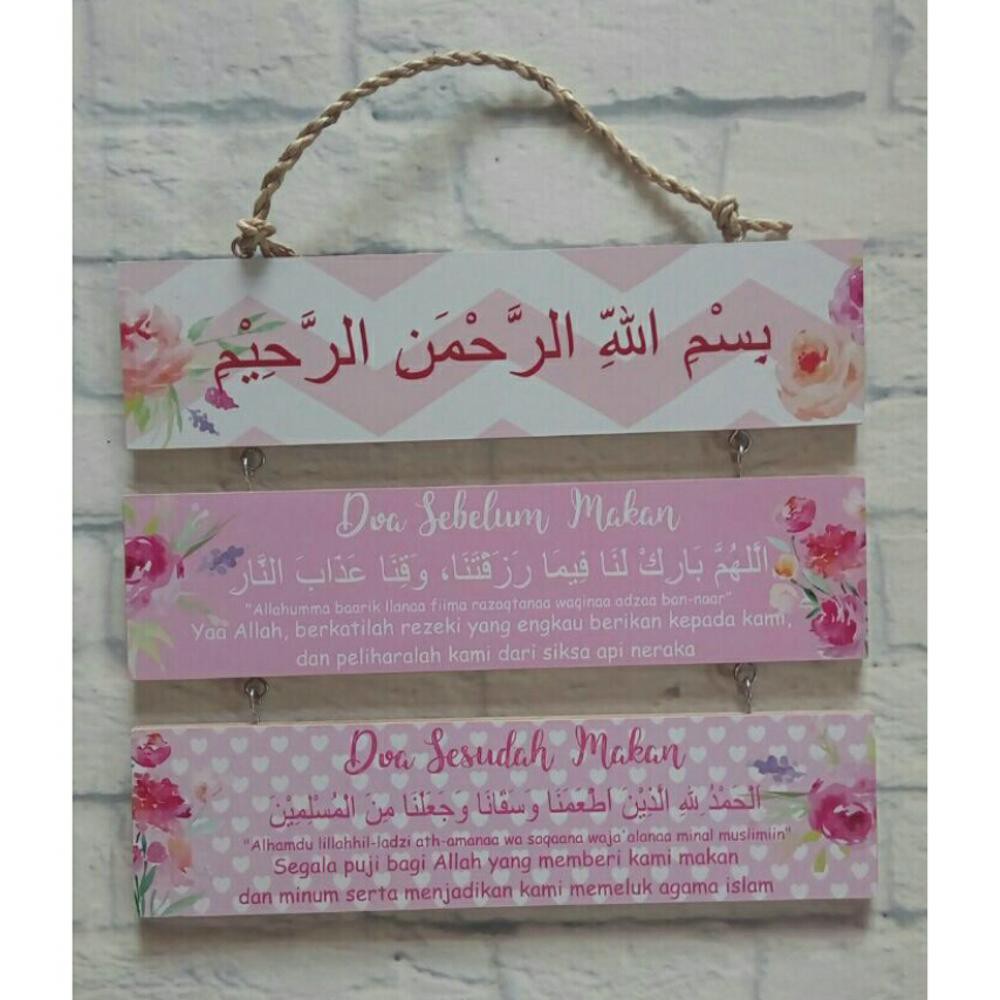 بِسْمِ اللّٰهِ الرَّحْمَنِ الرَّحِيْمِ
Doa Sebelum Makan
اَللّٰهُمَّ بَارِكْ لَنَا فِيمَا رَزَقْتَنَا، وَقِنَا عَذَابَ النَّارِ
"Allahumma baarik llanaa fiima razaqtanaa waqinaa adzaa ban-naar"
Yaa Allah, berkatilah rezeki yang engkau berikan kepada kami,
dan peliharalah kami dari siksa api neraka
Doa Sesudah Makan
اَلْحَمْدُ لِلّٰهِ الَّذِيْنَ اَطْعَمَنَا وَسَقَانَا وَجَعَلَنَا مِنَ الْمُسْلِمِيْنَ
"Alhamdu lillahhil-ladzi ath-amanaa wa saqaana waja'alanaa minal muslimiin"
Segala puji bagi Allah yang memberi kami makan
dan minum serta menjadikan kami memeluk agama islam